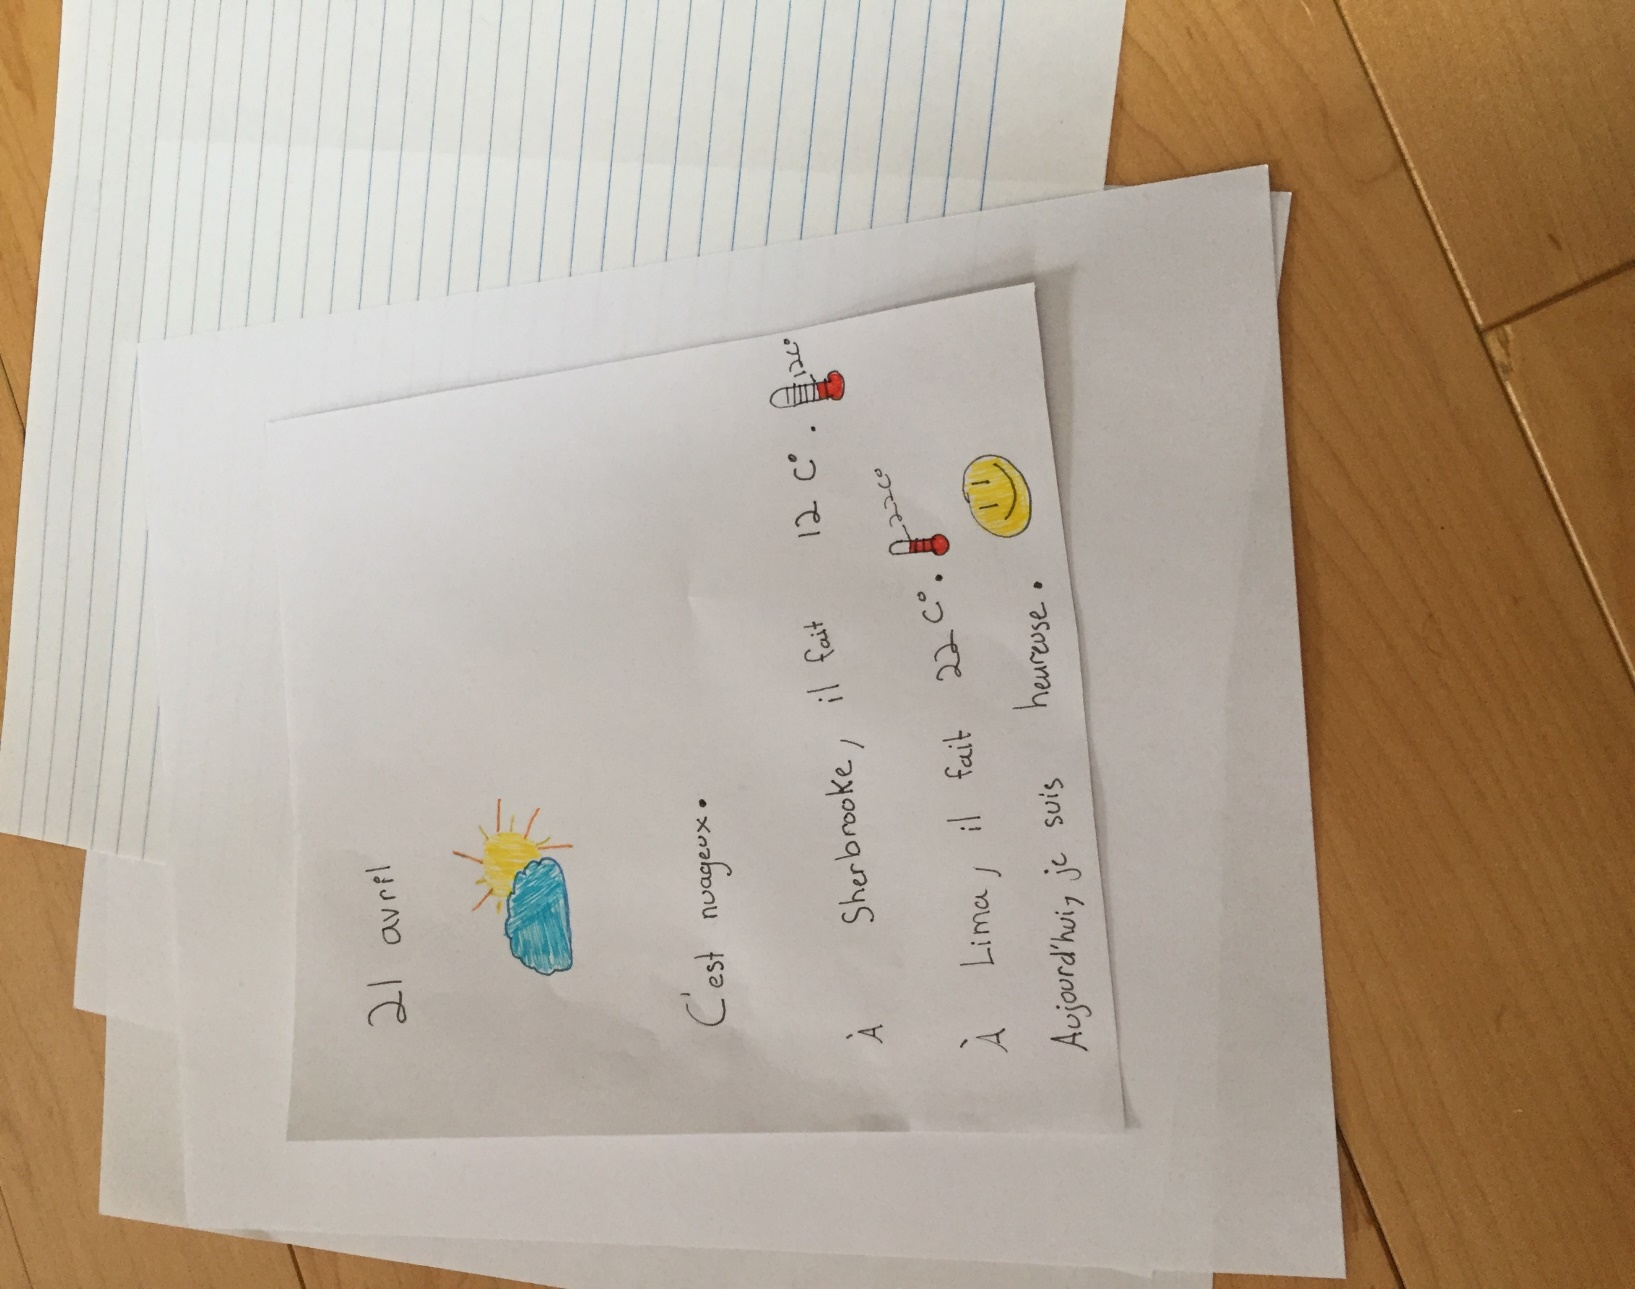 21 avril
C'est nuageux.
À Sherbrooke, il fait 12 C°. 12C°
À Lima, il fait 22 C°. 22C°
Aujourd'hui, je suis heureuse.